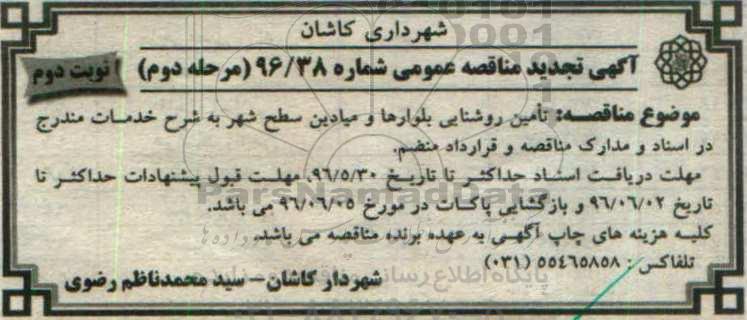 شهرداری کاشان
آگهی تجدید مناقصه عمومی شماره ۹۶/۳۸ (مرحله دوم)
نوبت دوم
موضوع مناقصه: تأمین روشنایی بلوارها و میادین سطح شهر به شرح خدمات مندرج
در اسناد و مدارک مناقصه و قرارداد منضم.
مهلت دریافت اسناد حداکثر تا تاریخ ۹۶/۵/۳۰، مهلت قبول پیشنهادات حداکثر تا
تاریخ ۹۶/۰۶/۰۲ و بازگشایی پاکات در مورخ ۹۶/۰۶/۰۵ می باشد.
کلیه هزینه های چاپ آگهی به عهده برنده مناقصه می باشد.
تلفاکس: ۵۵۴۶۵۸۵۸ (۰۳۱)
شهردار کاشان – سید محمدناظم رضوی
ParsNamadData
پایگاه اطلاع رسانی